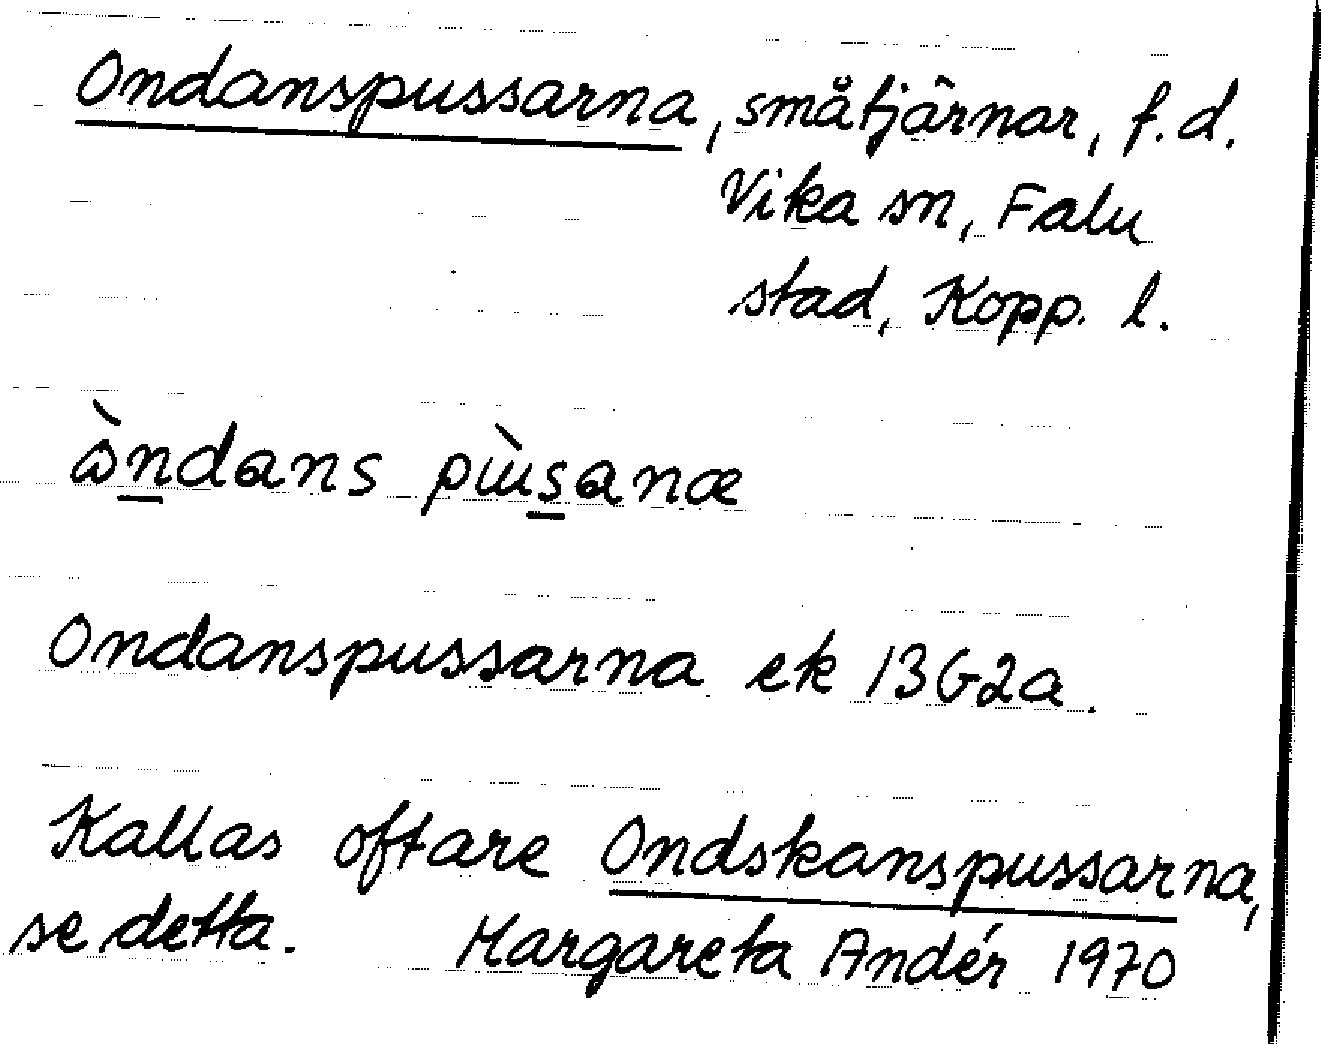 Ondanspussarna, småtjärnar, f.d.
Vika sn, Falu
stad, Kopp. l.
Ondanspussarna ek 13G2a.
Kallas oftare Ondskanspussarna,
se detta. Margareta Andér 1970